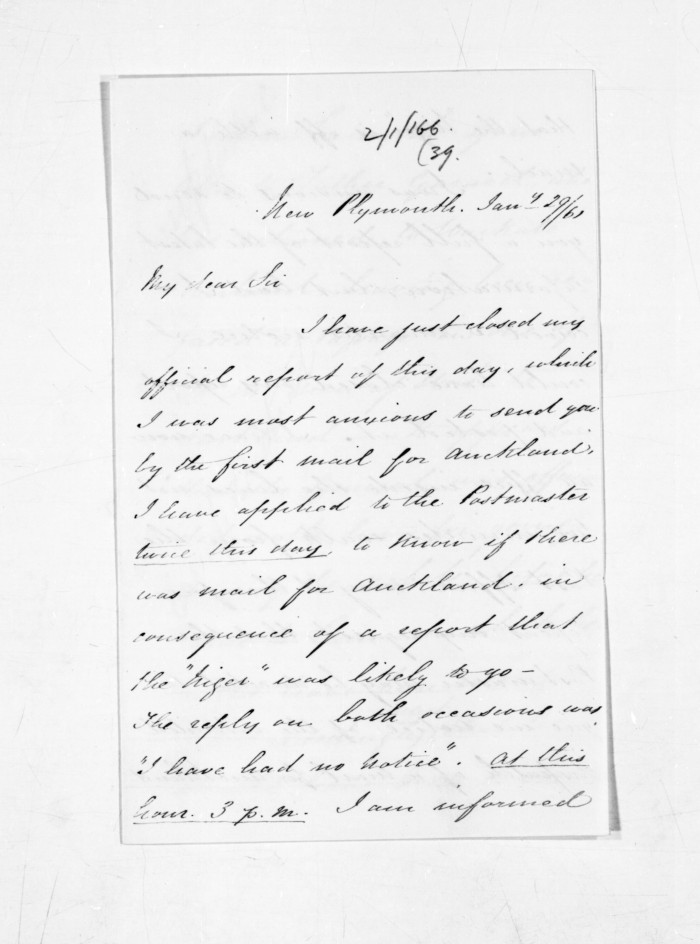 2/1/166.
(39.
New Plymouth. Jany 29/61
My dear Sir
I have just closed my
official report of this day, which
I was most anxious to send you
by the first mail for Auckland.
I have applied to the Postmaster
twice this day, to know if there
was mail for Auckland. in
consequence of a report that
the "Niger" was likely to go -
The reply on both occasions was
"I have had no notice". At this
hour. 3 p.m. I am informed